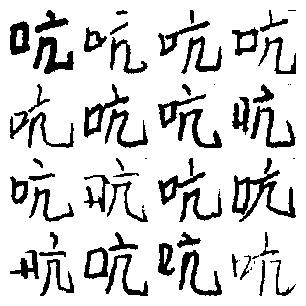 吭吭吭吭
吭吭吭吭
吭吭吭吭
吭吭吭吭